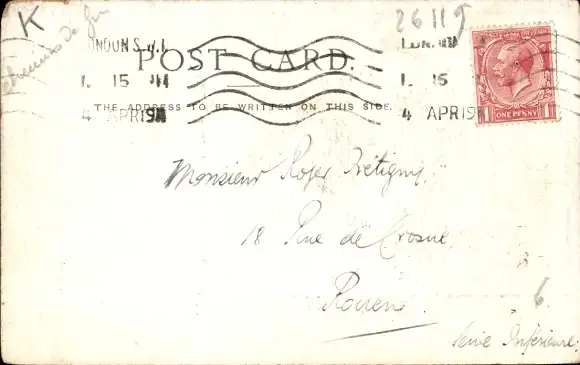 K
26119
LONDON S.W.1. LONDON
POST CARD.
1. 15 1. 15
THE ADDRESS TO BE WRITTEN ON THIS SIDE.
4 APR 19 4 APR 19
ONE PENNY
Monsieur Roger Brétigny,
18 Rue de Crosne
Rouen.
6.
Seine Inférieure.